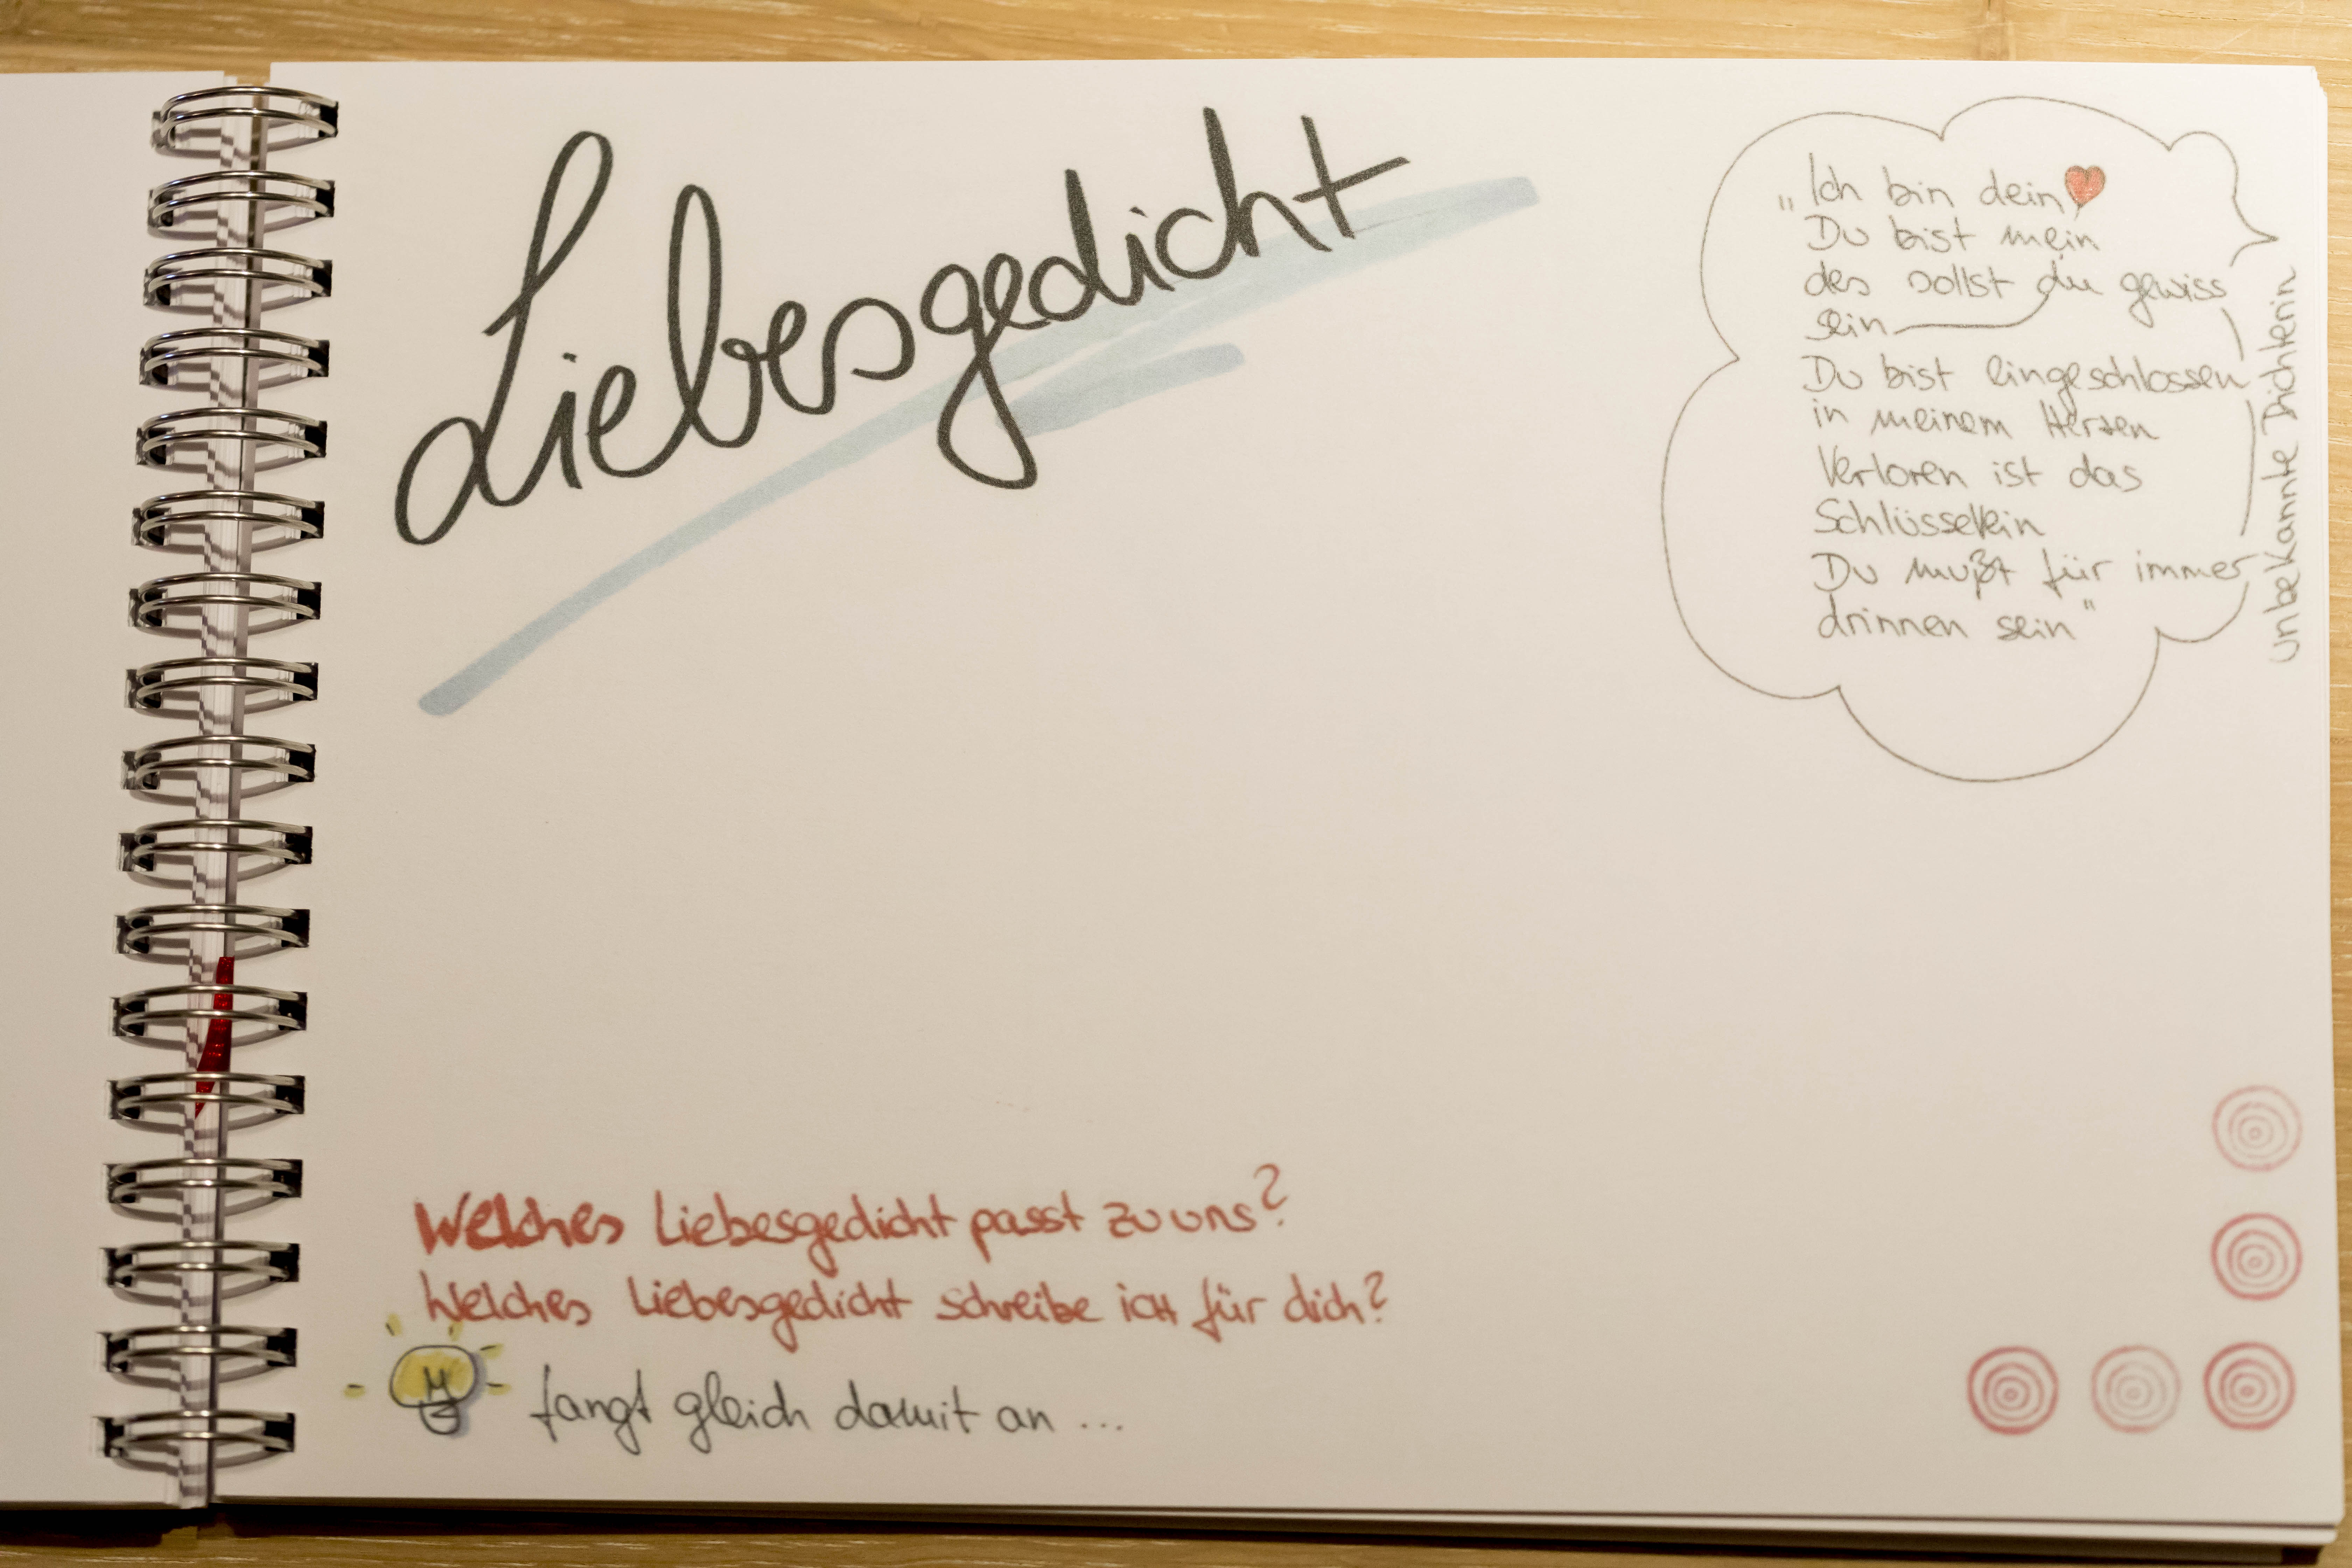 Liebesgedicht
„Ich bin dein
Du bist mein
des sollst du gewiss
sein
Du bist eingeschlossen
in meinem Herzen
Verloren ist das
Schlüsselein
Du mußt für immer
drinnen sein"
unbekannte Dichterin
Welches Liebesgedicht passt zu uns?
Welches Liebesgedicht schreibe ich für dich?
fangt gleich damit an ...